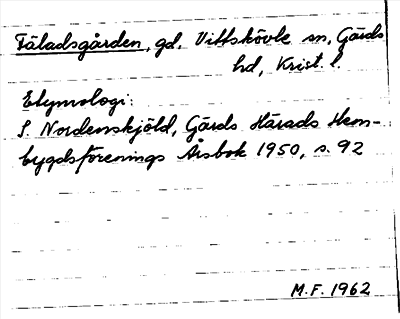 Fäladsgården, gd, Vittskövle sn, Gärds
hd, Krist. l.
Etymologi:
S. Nordenskjöld, Gärds Härads Hem-
bygdsförenings Årsbok 1950, s. 92
M.F. 1962